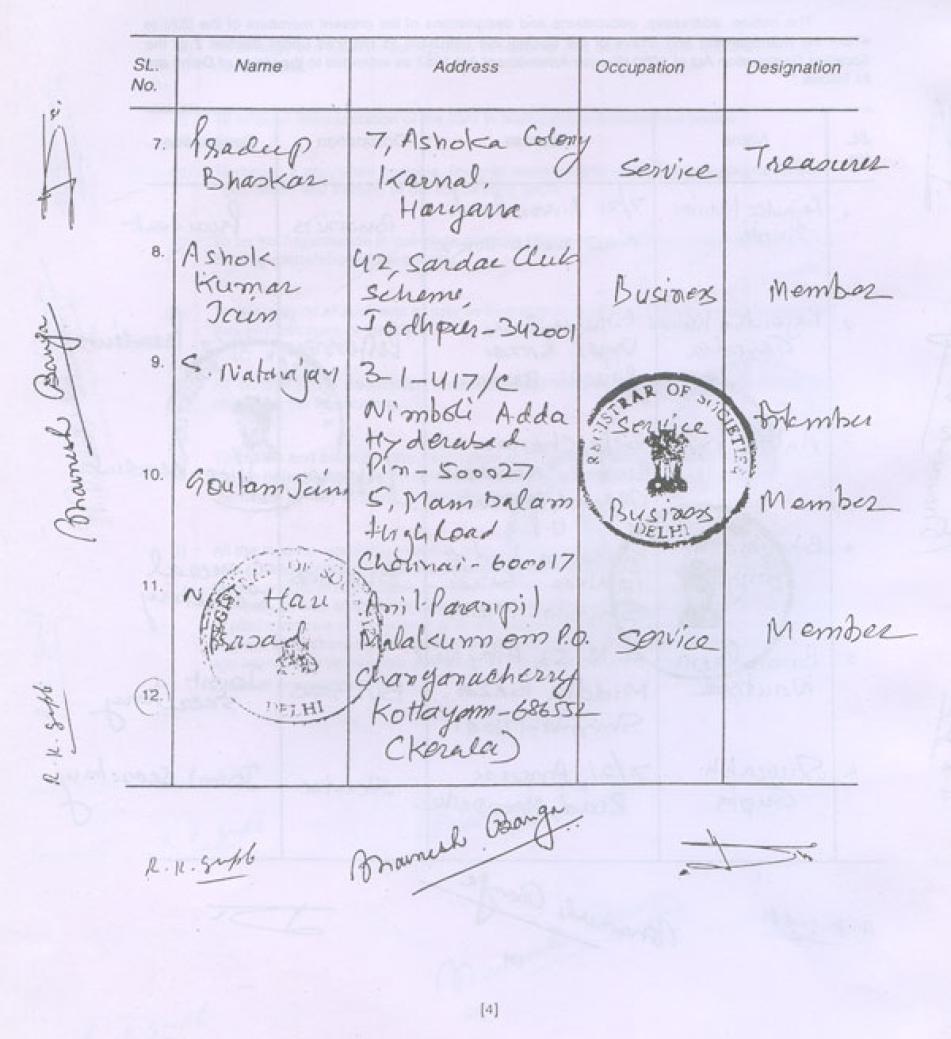 SL. No. Name Address Occupation Designation
7. Pradeep Bhaskar 7, Ashoka Colony Karnal, Haryana Service Treasurer
8. Ashok Kumar Jain 42, Sardar Club Scheme, Jodhpur-342001 Business Member
9. S. Natarajan 3-1-417/C Nimboli Adda Hyderabad Pin-500027 Service Member
10. Goutam Jain 5, Mambalam High Road Chennai-600017 Business Member
11. N. Hari Prasad Anil Parampil Malakunnom P.O. Changanacherry Kottayam-686552 (Kerala) Service Member
12.
REGISTRAR OF SOCIETIES
DELHI
REGISTRAR OF SOCIETIES
DELHI
R.K. Gupta
Bhavnesh Banga
R.K. Gupta
Bhavnesh Banga
[4]